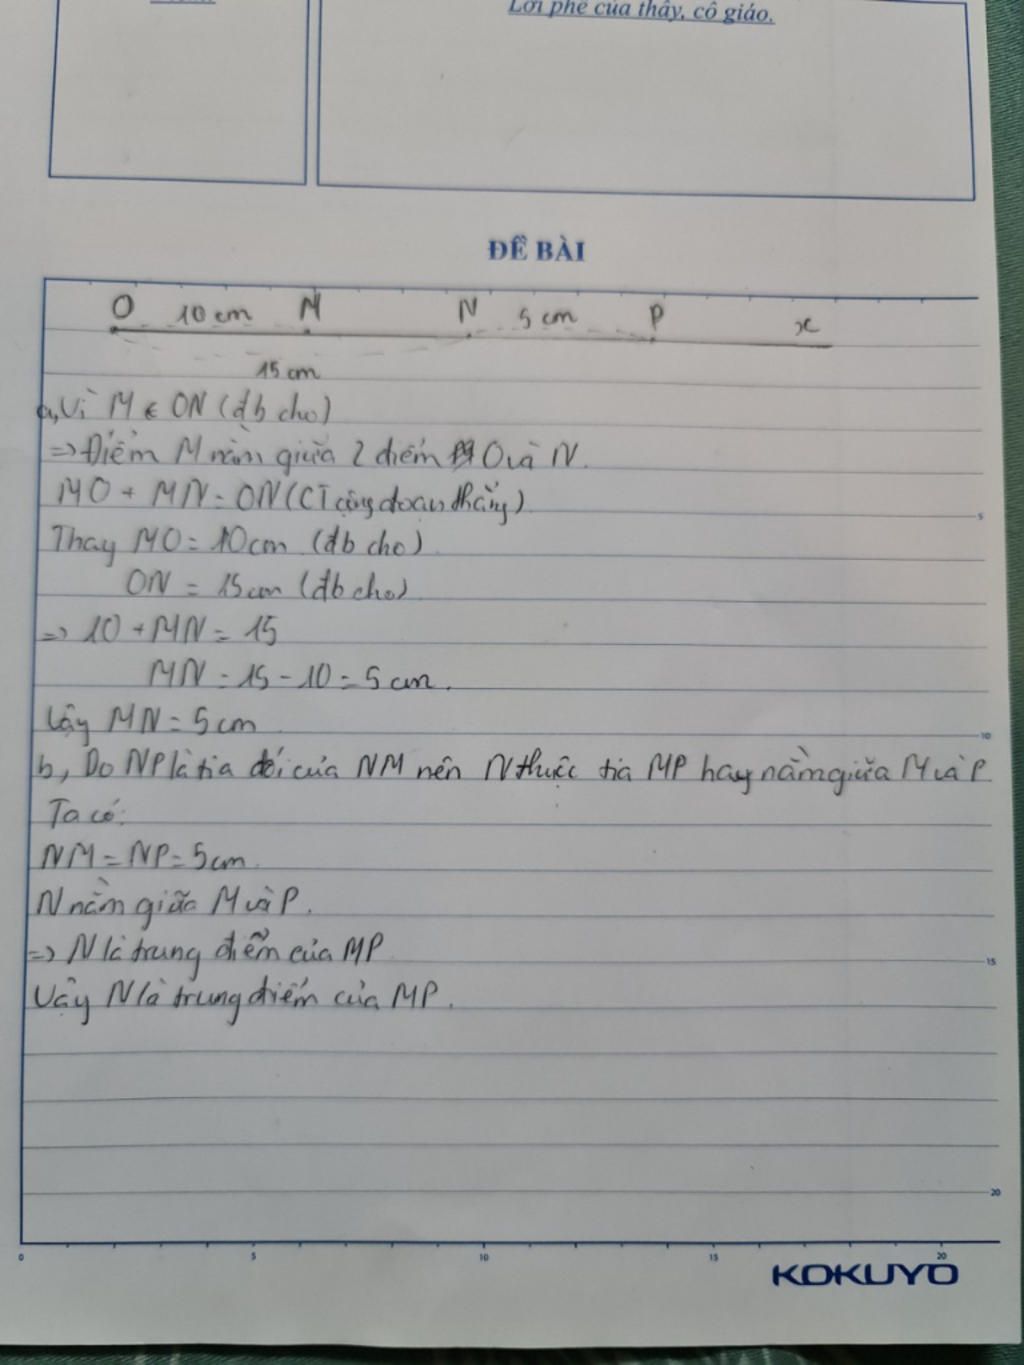 Lời phê của thầy, cô giáo.
ĐỀ BÀI
O 10 cm M N 5 cm P x
15 cm
a, Vì M ∈ ON (đb cho)
=> Điểm M nằm giữa 2 điểm O và N.
MO + MN = ON (CT cộng đoạn thẳng)
Thay MO = 10cm (đb cho)
ON = 15cm (đb cho)
=> 10 + MN = 15
MN = 15 - 10 = 5 cm.
Vậy MN = 5 cm
b, Do NP là tia đối của NM nên N thuộc tia MP hay nằm giữa M và P
Ta có:
NM = NP = 5cm.
N nằm giữa M và P.
=> N là trung điểm của MP
Vậy N là trung điểm của MP.
5
10
15
20
0 5 10 15 20
KOKUYO